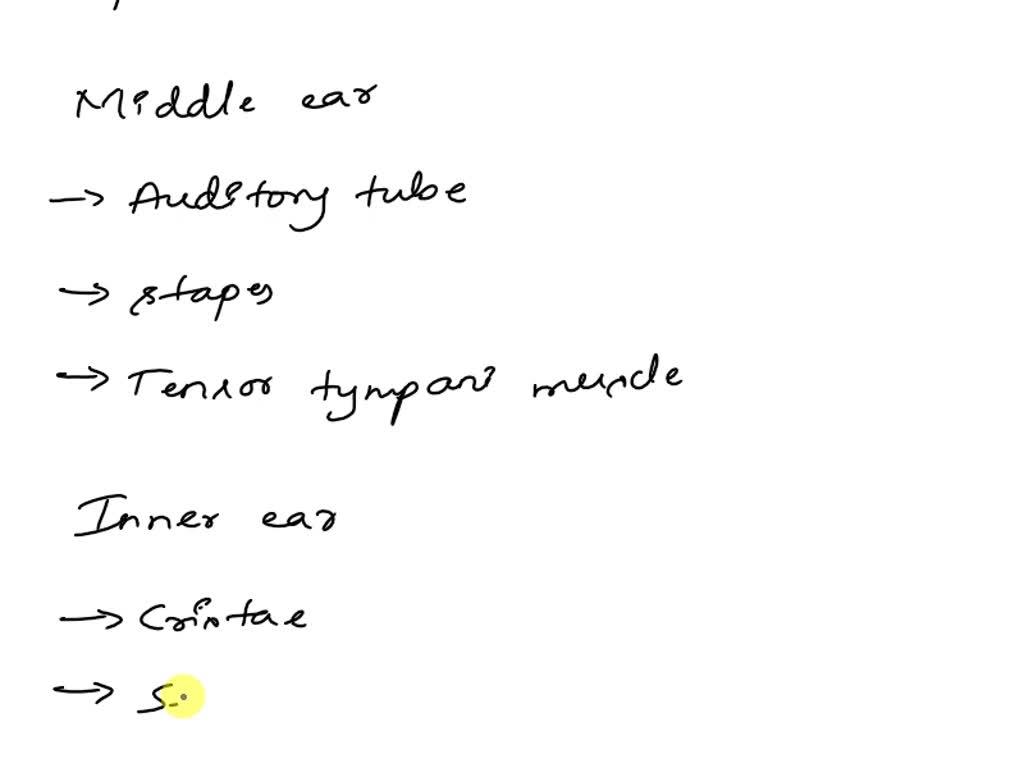 Middle ear
→ Auditory tube
→ stapes
→ Tensor tympani muscle
Inner ear
→ Cristae
→ S